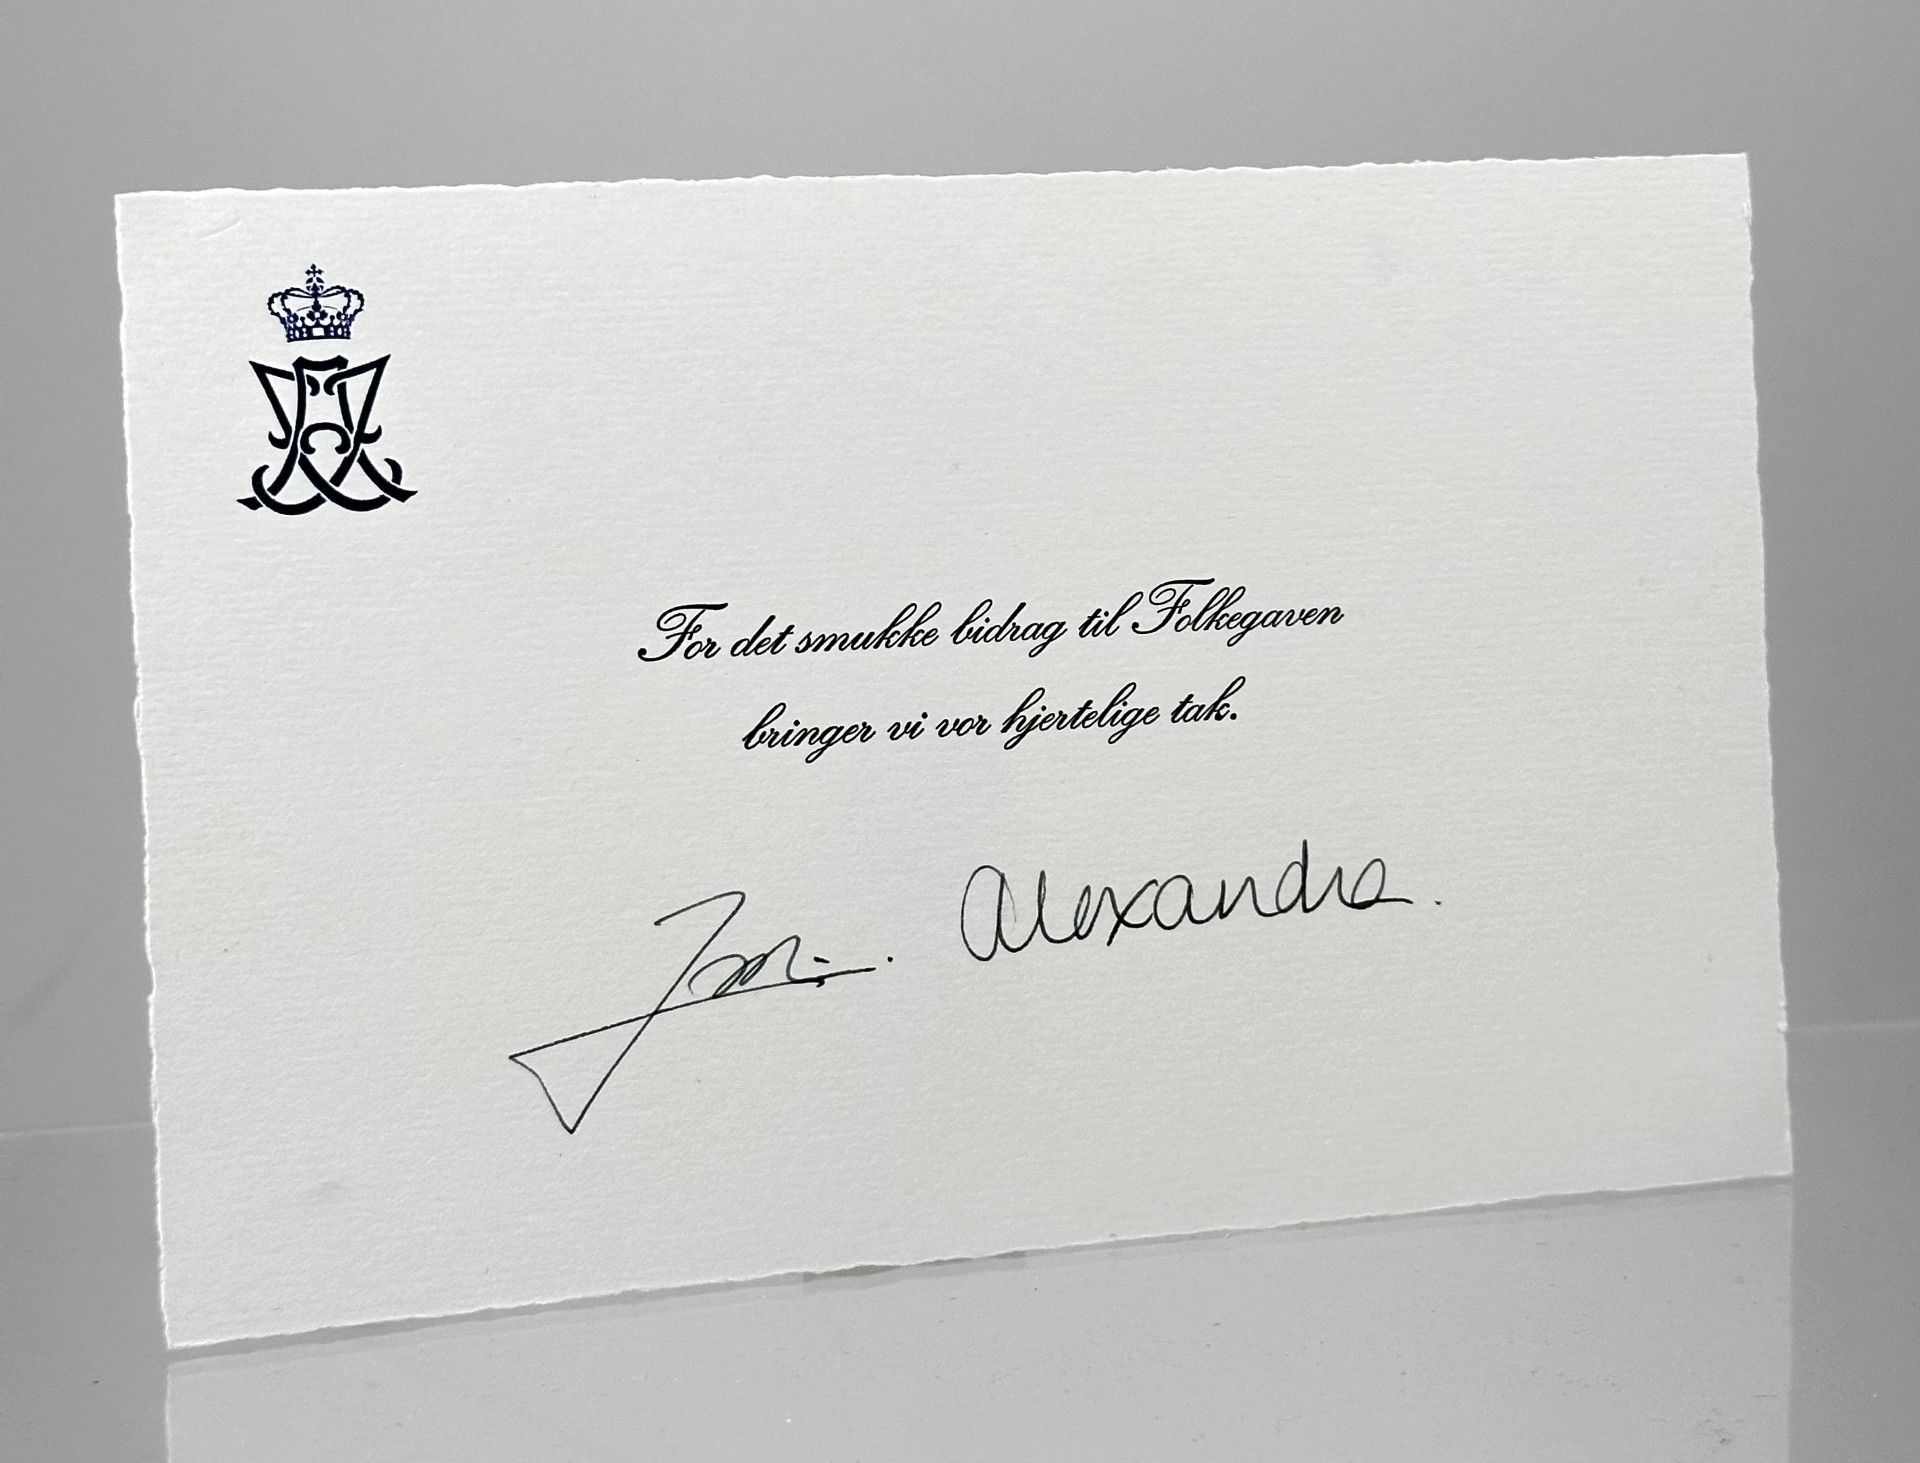 For det smukke bidrag til Folkegaven
bringer vi vor hjertelige tak.
Joachim. Alexandra.